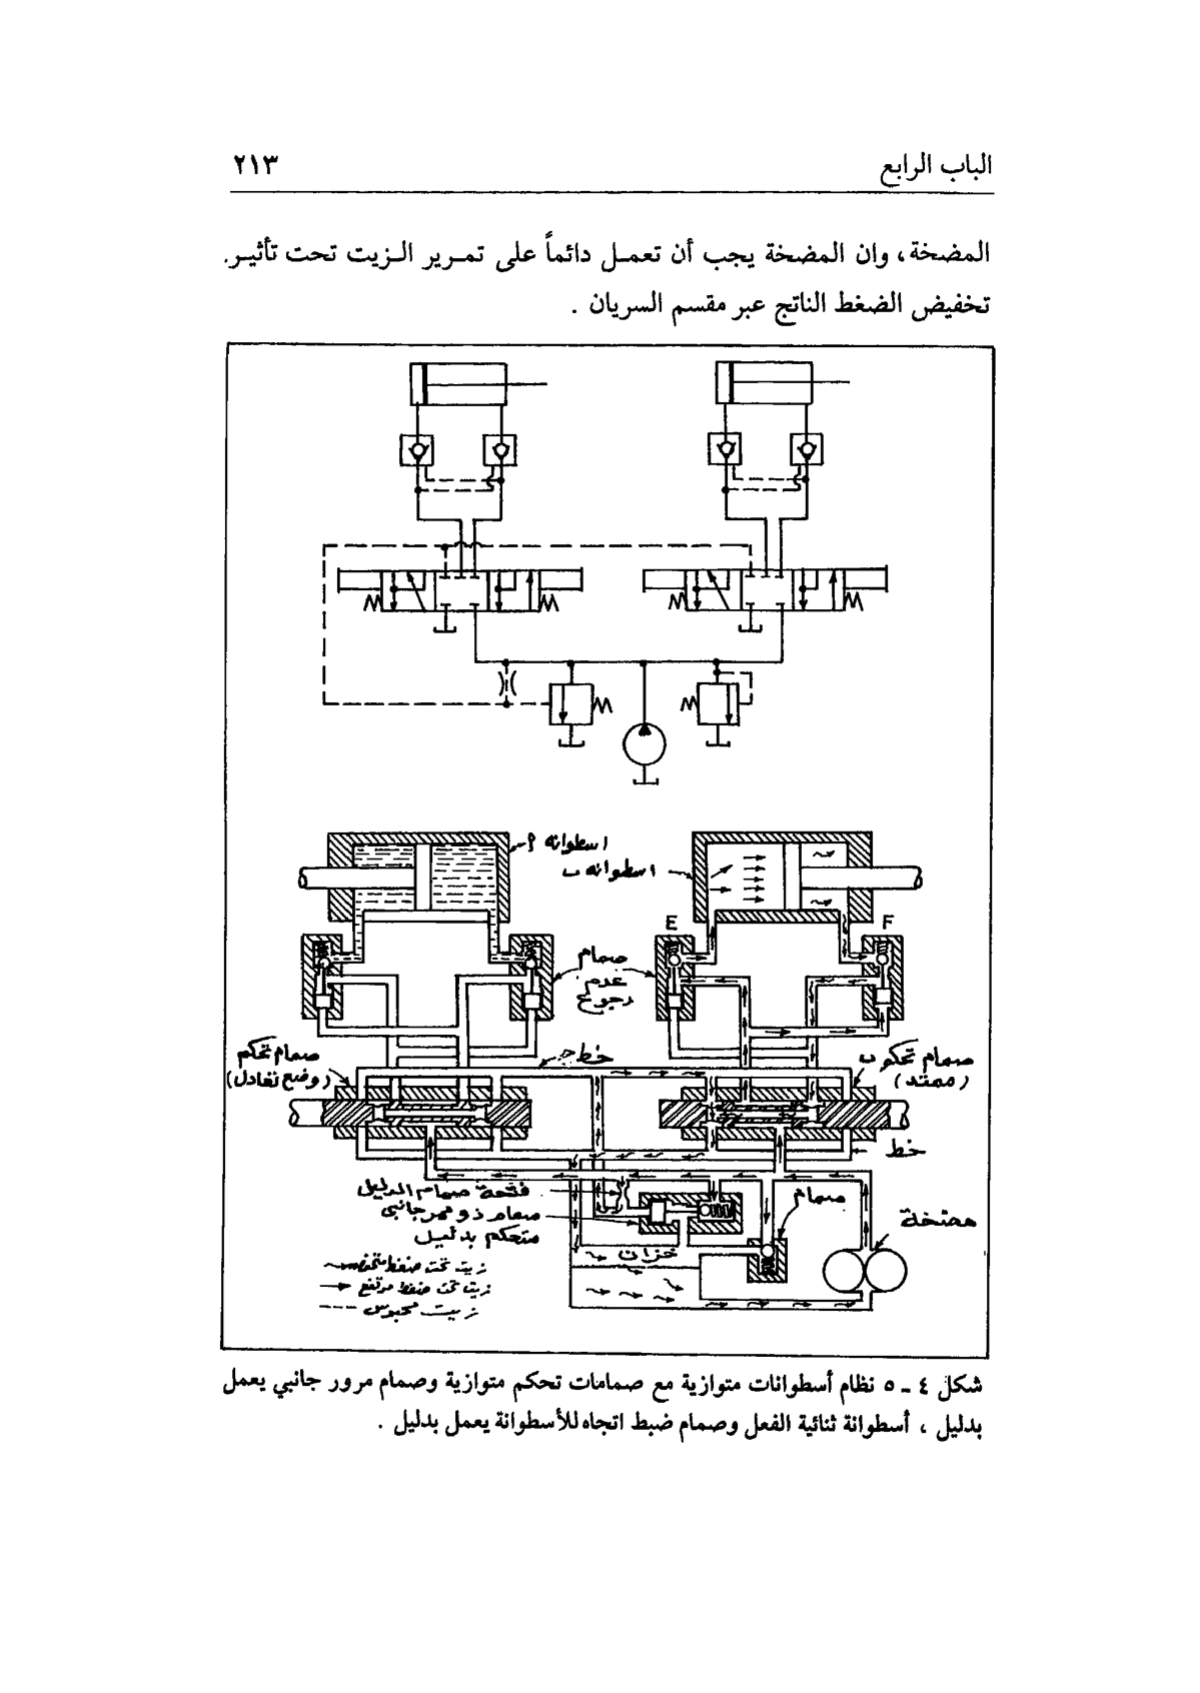 الباب الرابع ٢١٣
المضخة، وان المضخة يجب أن تعمل دائماً على تمرير الزيت تحت تأثير
تخفيض الضغط الناتج عبر مقسم السريان .
اسطوانه أ
اسطوانه ب
E
F
صمام
عدم
رجوع
صمام تحكم
(وضع تعادل)
خط ج
صمام تحكم ب
(ممتد)
خط
فتحة صمام الدليل
صمام ذو ممر جانبي
متحكم بدليل
صمام
مضخة
خزان
زيت تحت ضغط منخفض
زيت تحت ضغط مرتفع
زيت محبوس
شكل ٤ ـ ٥ نظام أسطوانات متوازية مع صمامات تحكم متوازية وصمام مرور جانبي يعمل
بدليل ، أسطوانة ثنائية الفعل وصمام ضبط اتجاه للأسطوانة يعمل بدليل .